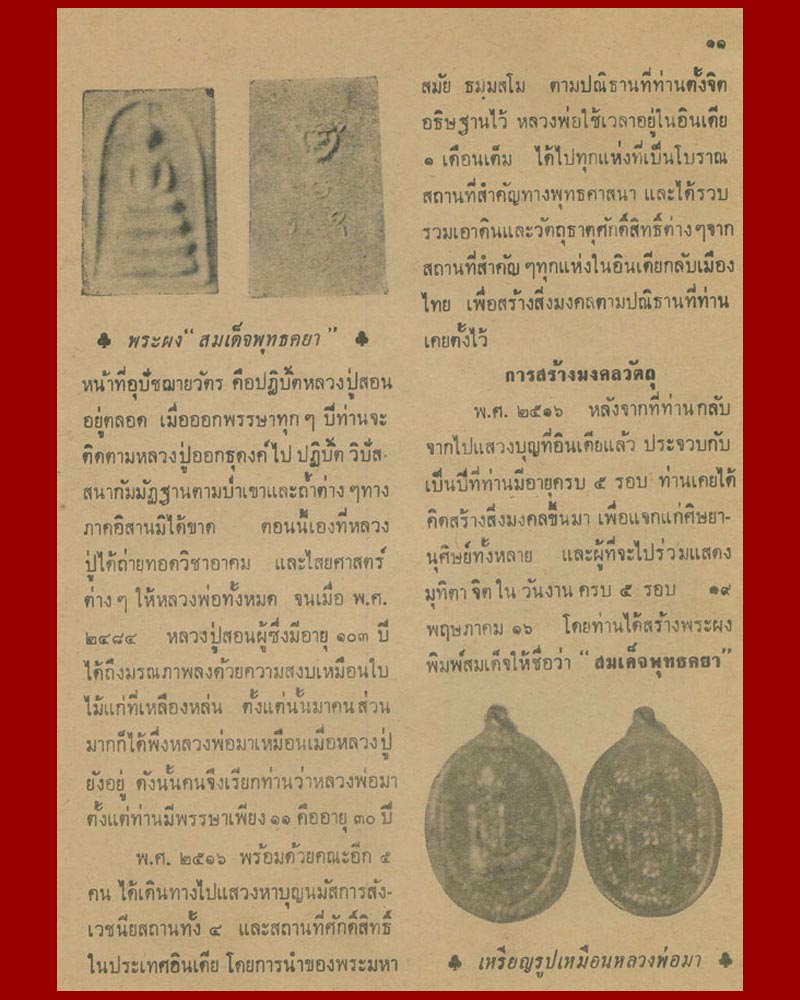 ๑๑
♣ พระผง “ สมเด็จพุทธคยา ” ♣
หน้าที่อุปัชฌายวัตร คือปฏิบัติหลวงปู่สอน
อยู่ตลอด เมื่อออกพรรษาทุก ๆ ปีท่านจะ
ติดตามหลวงปู่ออกธุดงค์ไป ปฏิบัติ วิปัส-
สนากัมมัฏฐานตามป่าเขาและถ้ำต่าง ๆทาง
ภาคอิสานมิได้ขาด ตอนนี้เองที่หลวง
ปู่ได้ถ่ายทอดวิชาอาคม และไสยศาสตร์
ต่าง ๆ ให้หลวงพ่อทั้งหมด จนเมื่อ พ.ศ.
๒๔๘๔ หลวงปู่สอนผู้ซึ่งมีอายุ ๑๐๓ ปี
ได้ถึงมรณภาพลงด้วยความสงบเหมือนใบ
ไม้แก่ที่เหลืองหล่น ตั้งแต่นั้นมาคนส่วน
มากก็ได้พึ่งหลวงพ่อมาเหมือนเมื่อหลวงปู่
ยังอยู่ ดังนั้นคนจึงเรียกท่านว่าหลวงพ่อมา
ตั้งแต่ท่านมีพรรษาเพียง ๑๑ คืออายุ ๓๐ ปี
พ.ศ. ๒๕๑๖ พร้อมด้วยคณะอีก ๕
คน ได้เดินทางไปแสวงหาบุญนมัสการสัง-
เวชนียสถานทั้ง ๔ และสถานที่ศักดิ์สิทธิ์
ในประเทศอินเดีย โดยการนำของพระมหา
สมัย ธมฺมสโม ตามปณิธานที่ท่านตั้งจิต
อธิษฐานไว้ หลวงพ่อใช้เวลาอยู่ในอินเดีย
๑ เดือนเต็ม ได้ไปทุกแห่งที่เป็นโบราณ
สถานที่สำคัญทางพุทธศาสนา และได้รวบ
รวมเอาดินและวัตถุธาตุศักดิ์สิทธิ์ต่าง ๆจาก
สถานที่สำคัญ ๆทุกแห่งในอินเดียกลับเมือง
ไทย เพื่อสร้างสิ่งมงคลตามปณิธานที่ท่าน
เคยตั้งไว้
การสร้างมงคลวัตถุ
พ.ศ. ๒๕๑๖ หลังจากที่ท่านกลับ
จากไปแสวงบุญที่อินเดียแล้ว ประจวบกับ
เป็นปีที่ท่านมีอายุครบ ๕ รอบ ท่านเคยได้
คิดสร้างสิ่งมงคลขึ้นมา เพื่อแจกแก่ศิษยา-
นุศิษย์ทั้งหลาย และผู้ที่จะไปร่วมแสดง
มุทิตา จิต ใน วันงาน ครบ ๕ รอบ ๑๙
พฤษภาคม ๑๖ โดยท่านได้สร้างพระผง
พิมพ์สมเด็จให้ชื่อว่า “สมเด็จพุทธคยา”
♣ เหรียญรูปเหมือนหลวงพ่อมา ♣